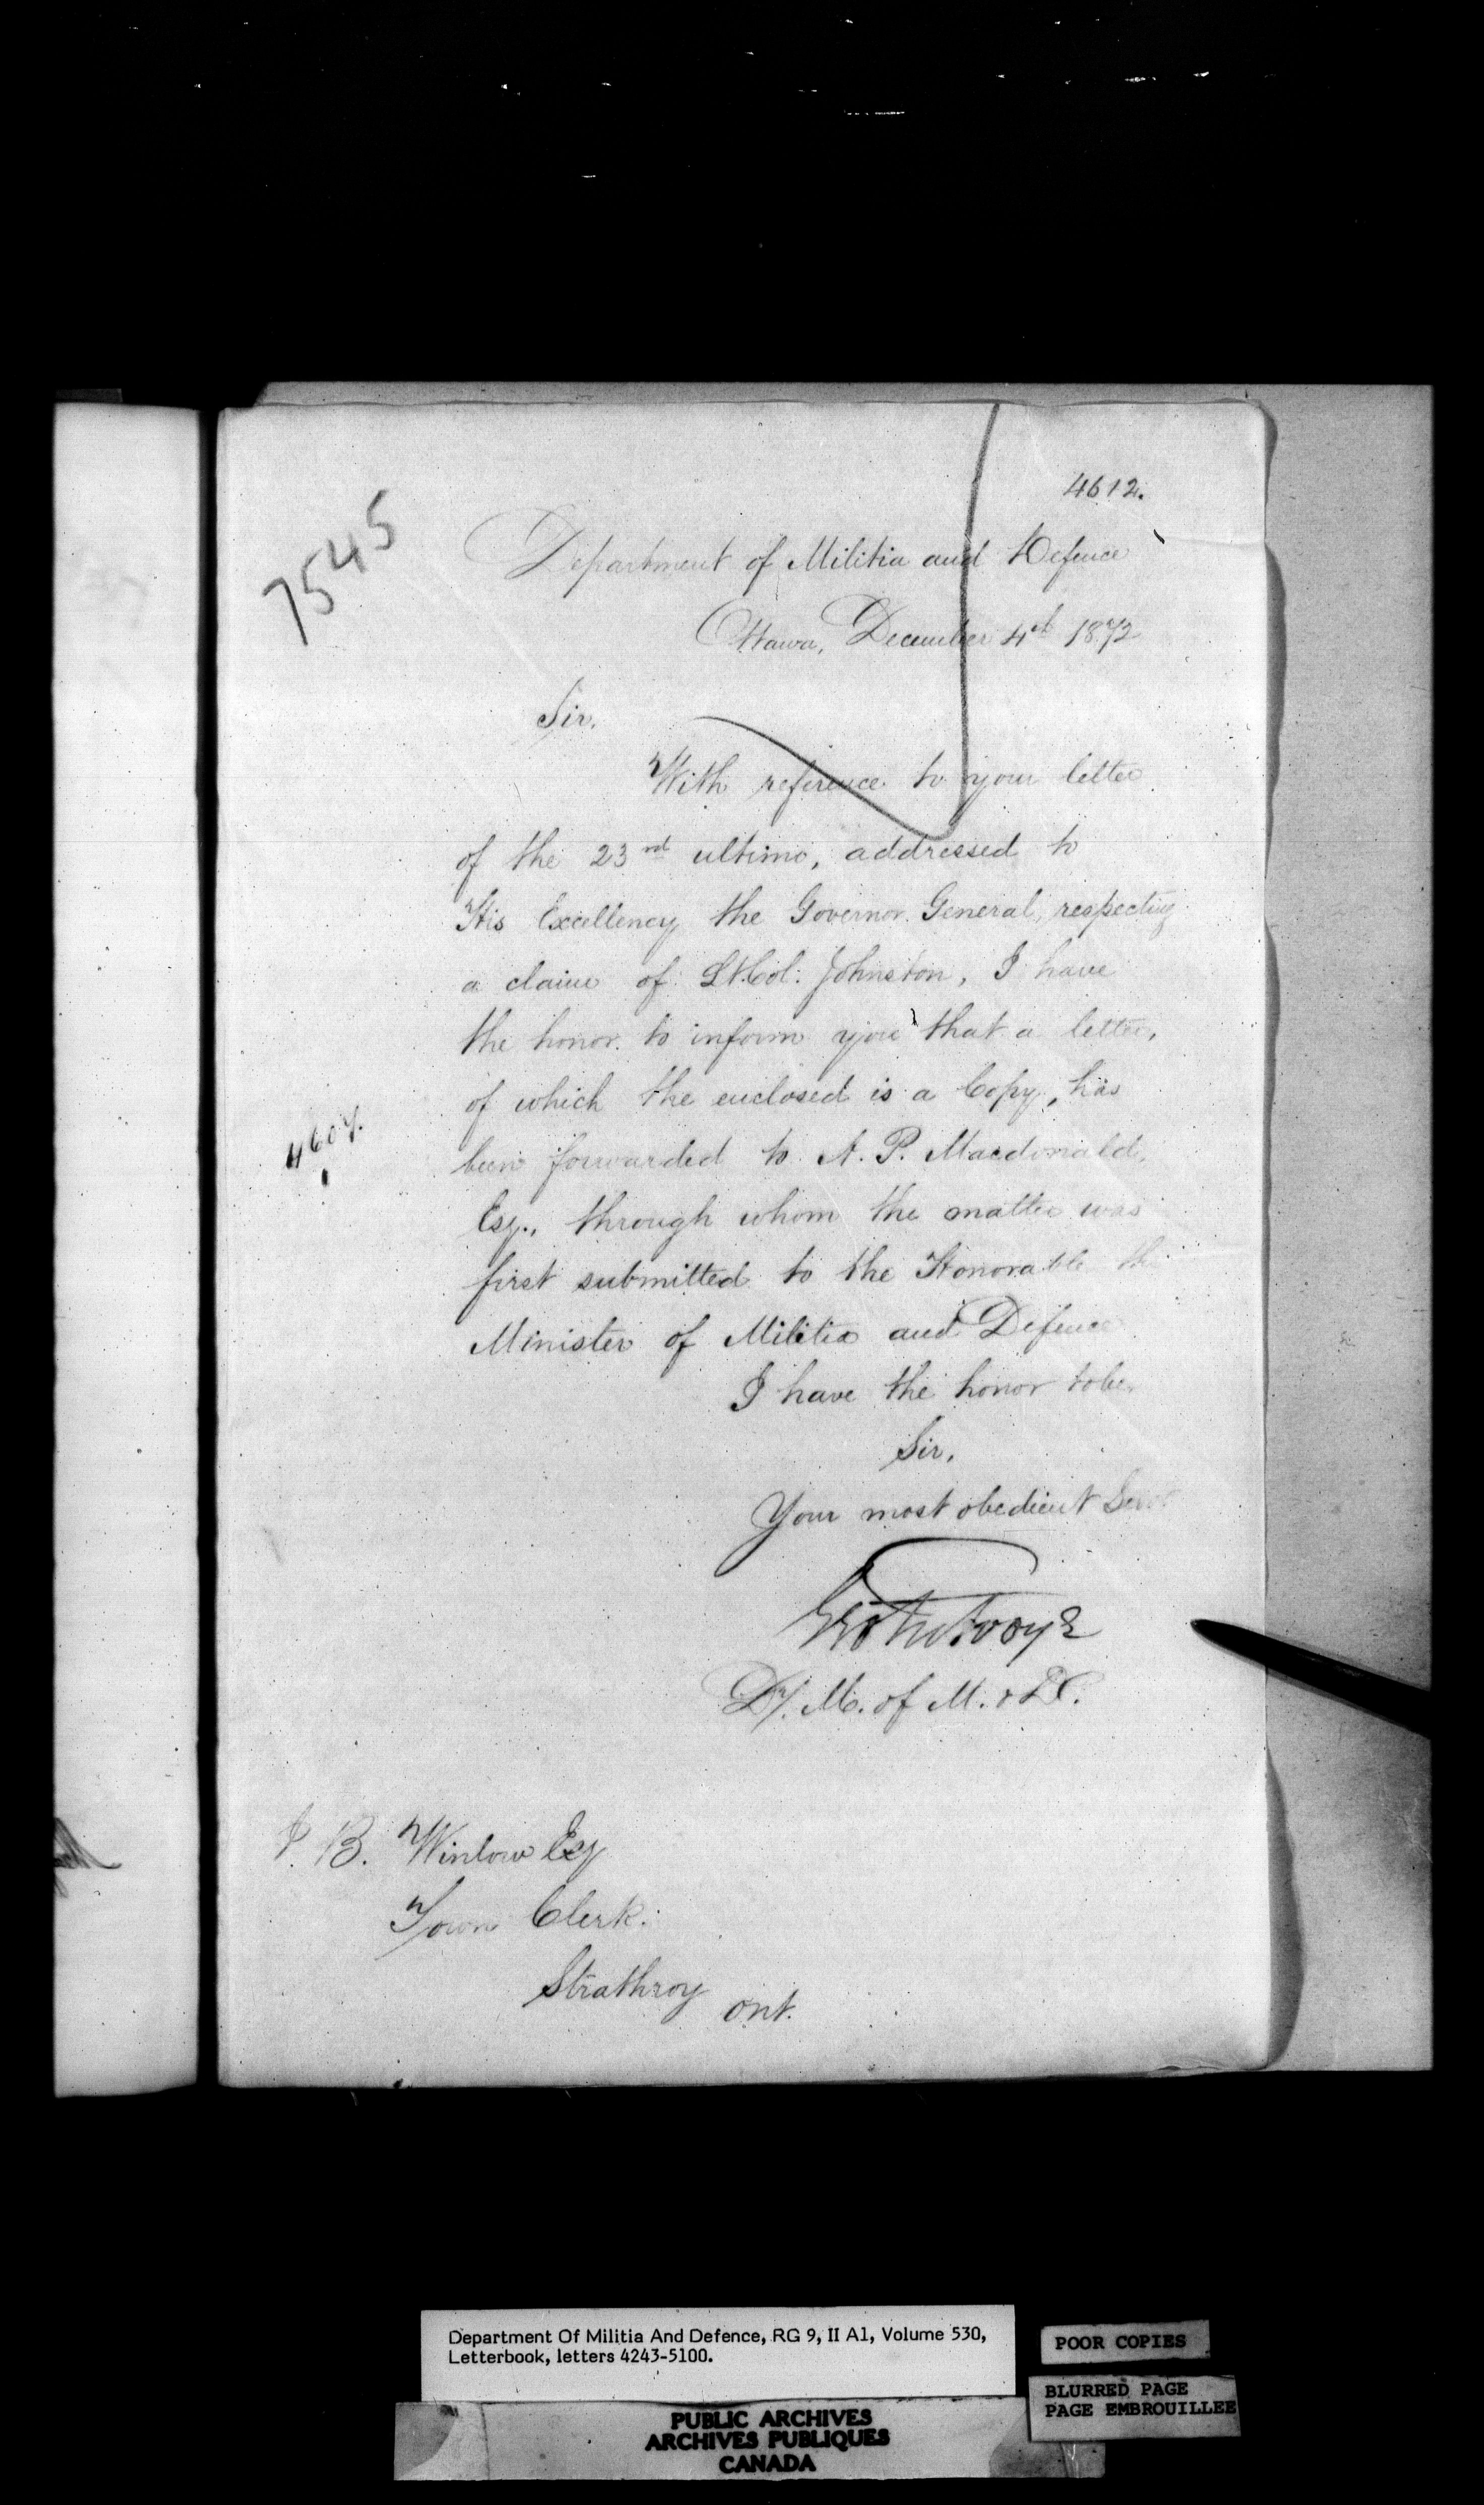 4612.
7545
Department of Militia and Defence
Ottawa, December 4th 1872
Sir,
With reference to your letter
of the 23rd ultimo, addressed to
His Excellency the Governor General, respecting
a claim of Lt. Col. Johnston, I have
the honor to inform you that a letter,
of which the enclosed is a Copy, has
4607.
been forwarded to A. P. Macdonald,
Esq., through whom the matter was
first submitted to the Honorable the
Minister of Militia and Defence
I have the honor to be,
Sir,
Your most obedient Servt
D/. M. of M. & D.
B. Winlow Esq
Town Clerk.
Strathroy Ont.
Department Of Militia And Defence, RG 9, II A1, Volume 530,
Letterbook, letters 4243-5100.
POOR COPIES
BLURRED PAGE
PAGE EMBROUILLEE
PUBLIC ARCHIVES
ARCHIVES PUBLIQUES
CANADA